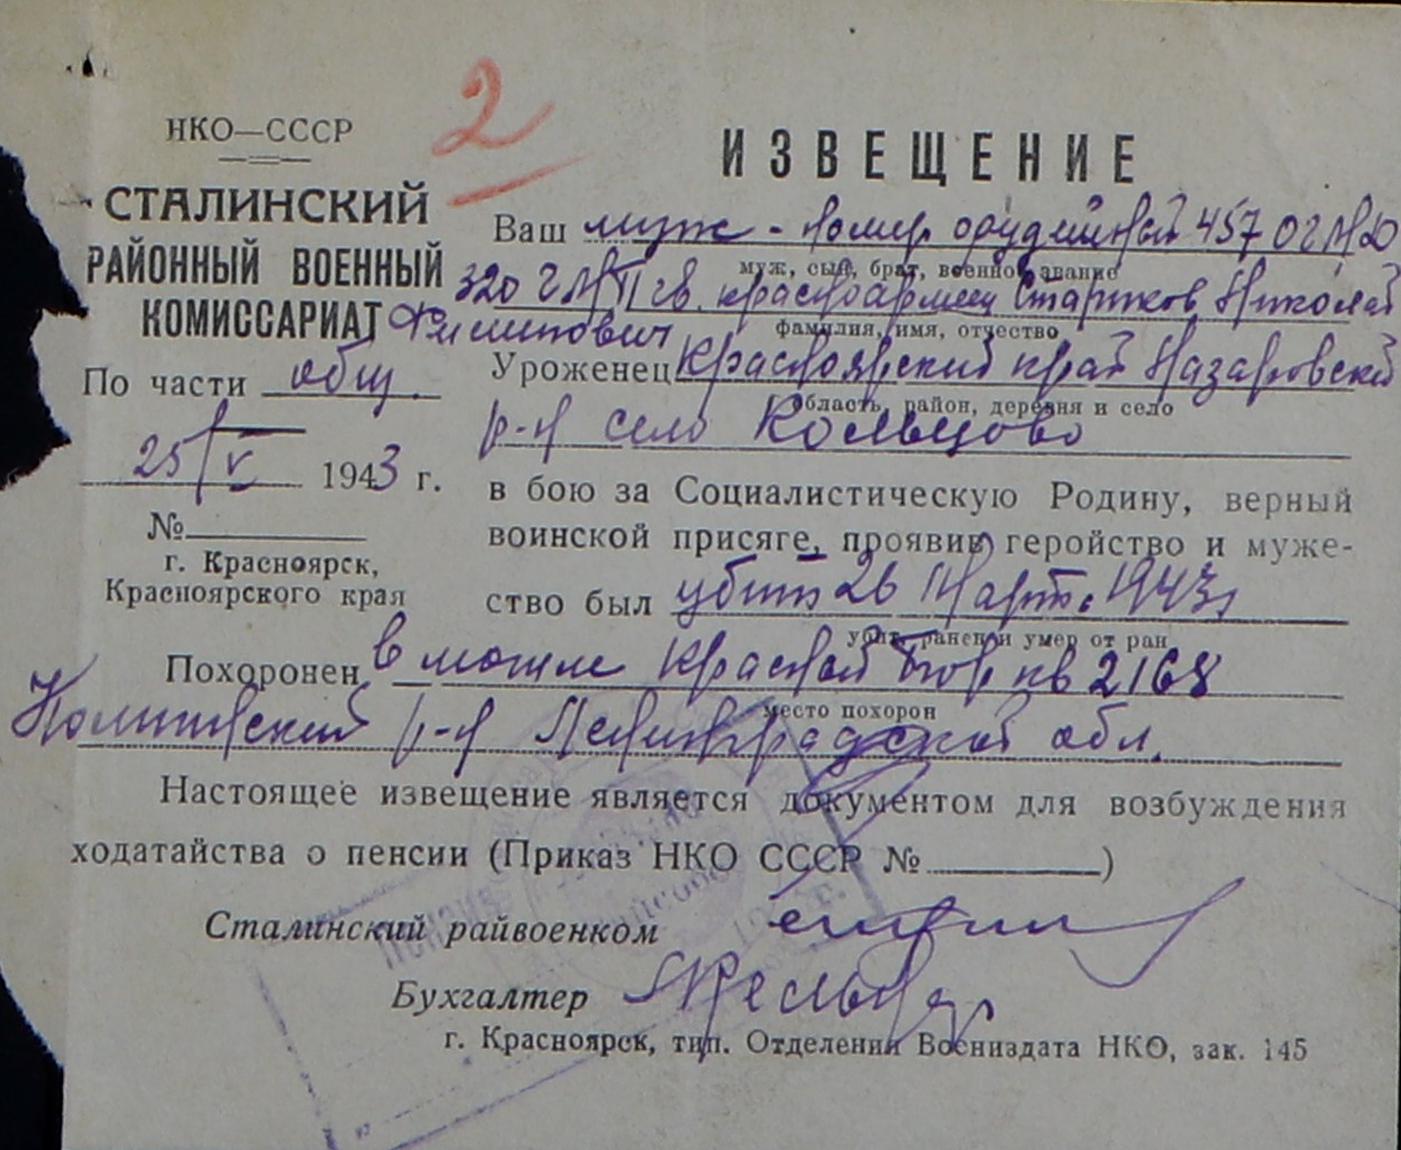 2
НКО—СССР
СТАЛИНСКИЙ
РАЙОННЫЙ ВОЕННЫЙ
КОМИССАРИАТ
По части общ.
25/V 1943 г.
№
г. Красноярск,
Красноярского края
ИЗВЕЩЕНИЕ
Ваш муж - номер орудийный 457
муж, сын, брат, военное звание
320 красноармеец Старков Николай
Филипович
фамилия, имя, отчество
Уроженец Красноярский край Назаровский
область, район, деревня и село
р-н село Кольцово
в бою за Социалистическую Родину, верный
воинской присяге, проявив геройство и муже-
ство был убит 26 Март. 1943 г
убит, ранен и умер от ран
Похоронен в могиле Красной Бор кв 2168
место похорон
р-н Ленинградской обл.
Настоящее извещение является документом для возбуждения
ходатайства о пенсии (Приказ НКО СССР №        )
Сталинский райвоенком
Бухгалтер
г. Красноярск, тип. Отделения Воениздата НКО, зак. 145